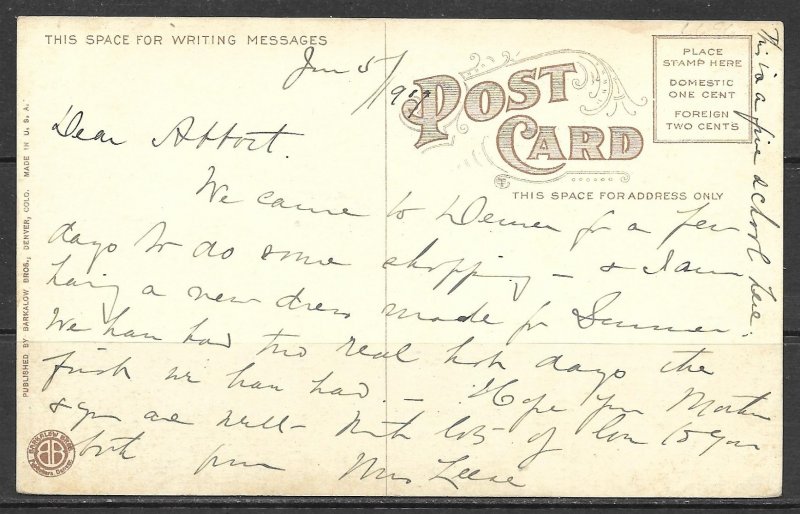 THIS SPACE FOR WRITING MESSAGES
Jun 5/
POST CARD
PLACE
STAMP HERE
DOMESTIC
ONE CENT
FOREIGN
TWO CENTS
THIS SPACE FOR ADDRESS ONLY
Dear Abbort.
We came to Denver for a few
days to do some shopping – & I am
having a new dress made for Summer.
We have had two real hot days the
first we have had. – Hope your Mother
& you are well – With lots of love to you
both from Mrs Leese
This is a fine school here.
PUBLISHED BY BARKALOW BROS., DENVER, COLO. MADE IN U. S. A.
BARKALOW BROS.